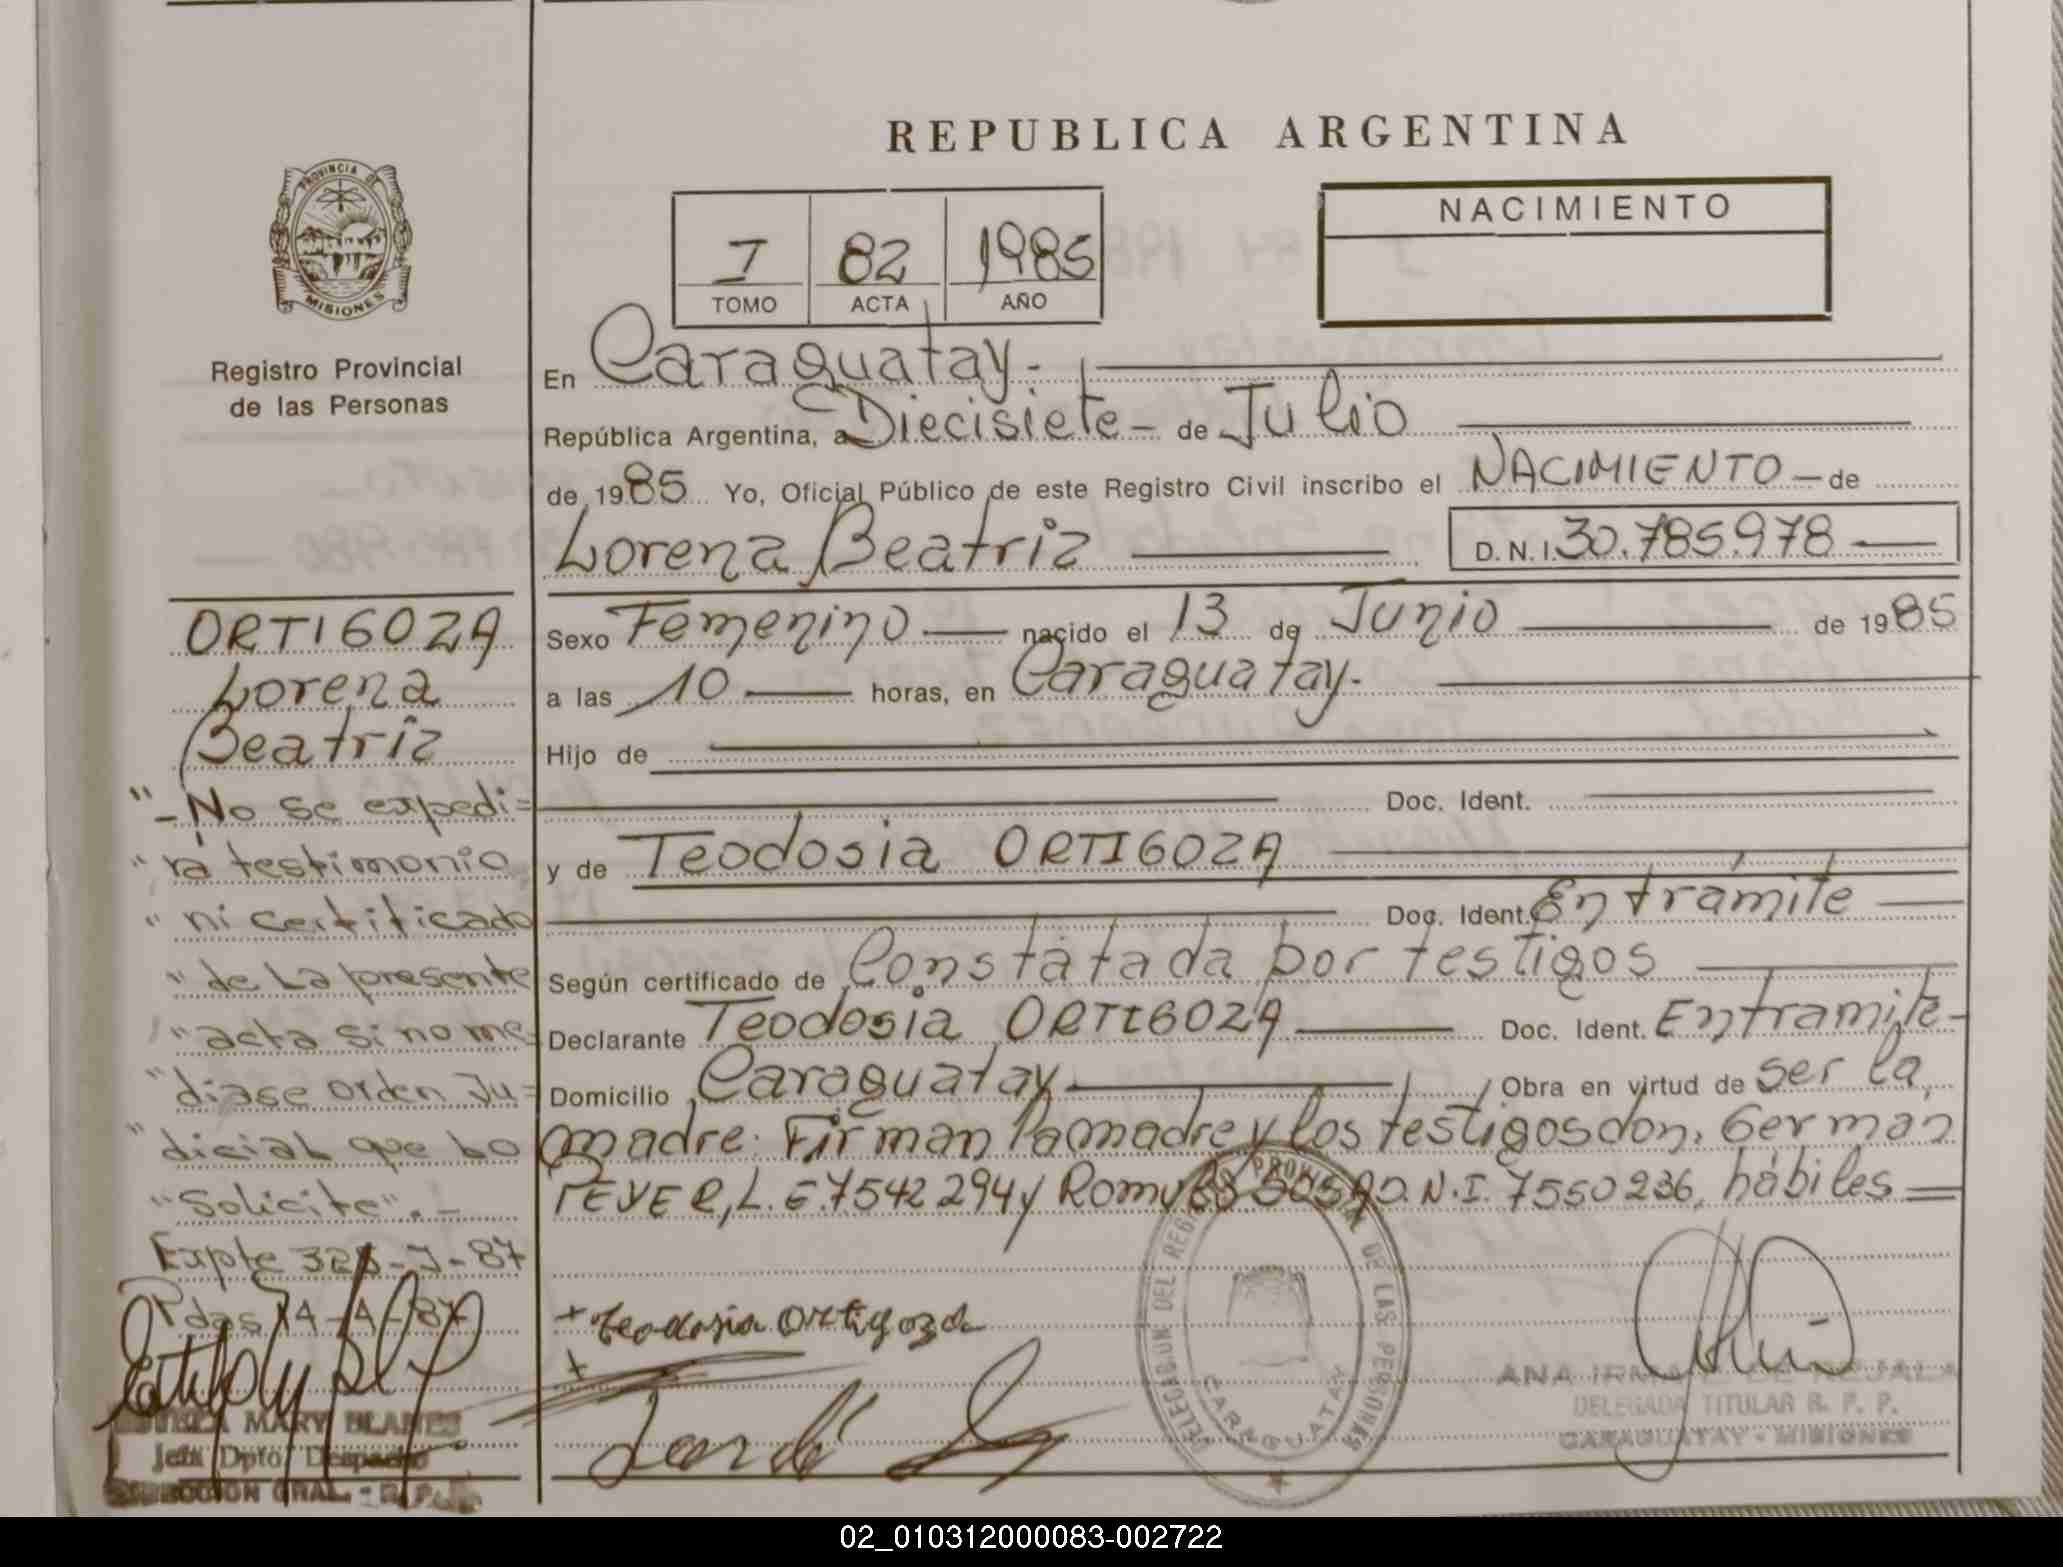 REPUBLICA ARGENTINA
PROVINCIA DE
MISIONES
Registro Provincial
de las Personas
I 82 1985
TOMO ACTA AÑO
NACIMIENTO
En Caraguatay.-
República Argentina, a Diecisiete - de Julio
de 1985 Yo, Oficial Público de este Registro Civil inscribo el NACIMIENTO - de
Lorena Beatriz D.N.I. 30.785.978
Sexo Femenino nacido el 13 de Junio de 1985
a las 10 horas, en Caraguatay.
Hijo de
Doc. Ident.
y de Teodosia ORTIGOZA
Doc. Ident. En trámite
Según certificado de Constatada por testigos
Declarante Teodosia ORTIGOZA Doc. Ident. En tramite-
Domicilio Caraguatay Obra en virtud de ser la
madre. Firman la madre y los testigos don, German
PEYER, L.E. 7542294 y Romulo SOSA D.N.I. 7550236, hábiles
ORTIGOZA
Lorena
Beatriz
"-No se expedi=
"rá testimonio
"ni certificado
"de La presente
"acta si no me-
"diase orden Ju=
"dicial que Lo
"Solicite".-
Expte 328-J-87
Pdas 14-4-87
MARY BLANES
Jefa Dpto. Despacho
DIRECCION GRAL. - R.P.P.
+ teodosia Ortigoza
+
DELEGACION DEL REGISTRO PROVINCIAL DE LAS PERSONAS
CARAGUATAY
ANA IRMA DE TEJALA
DELEGADA TITULAR R. P. P.
CARAGUATAY - MISIONES
02_010312000083-002722